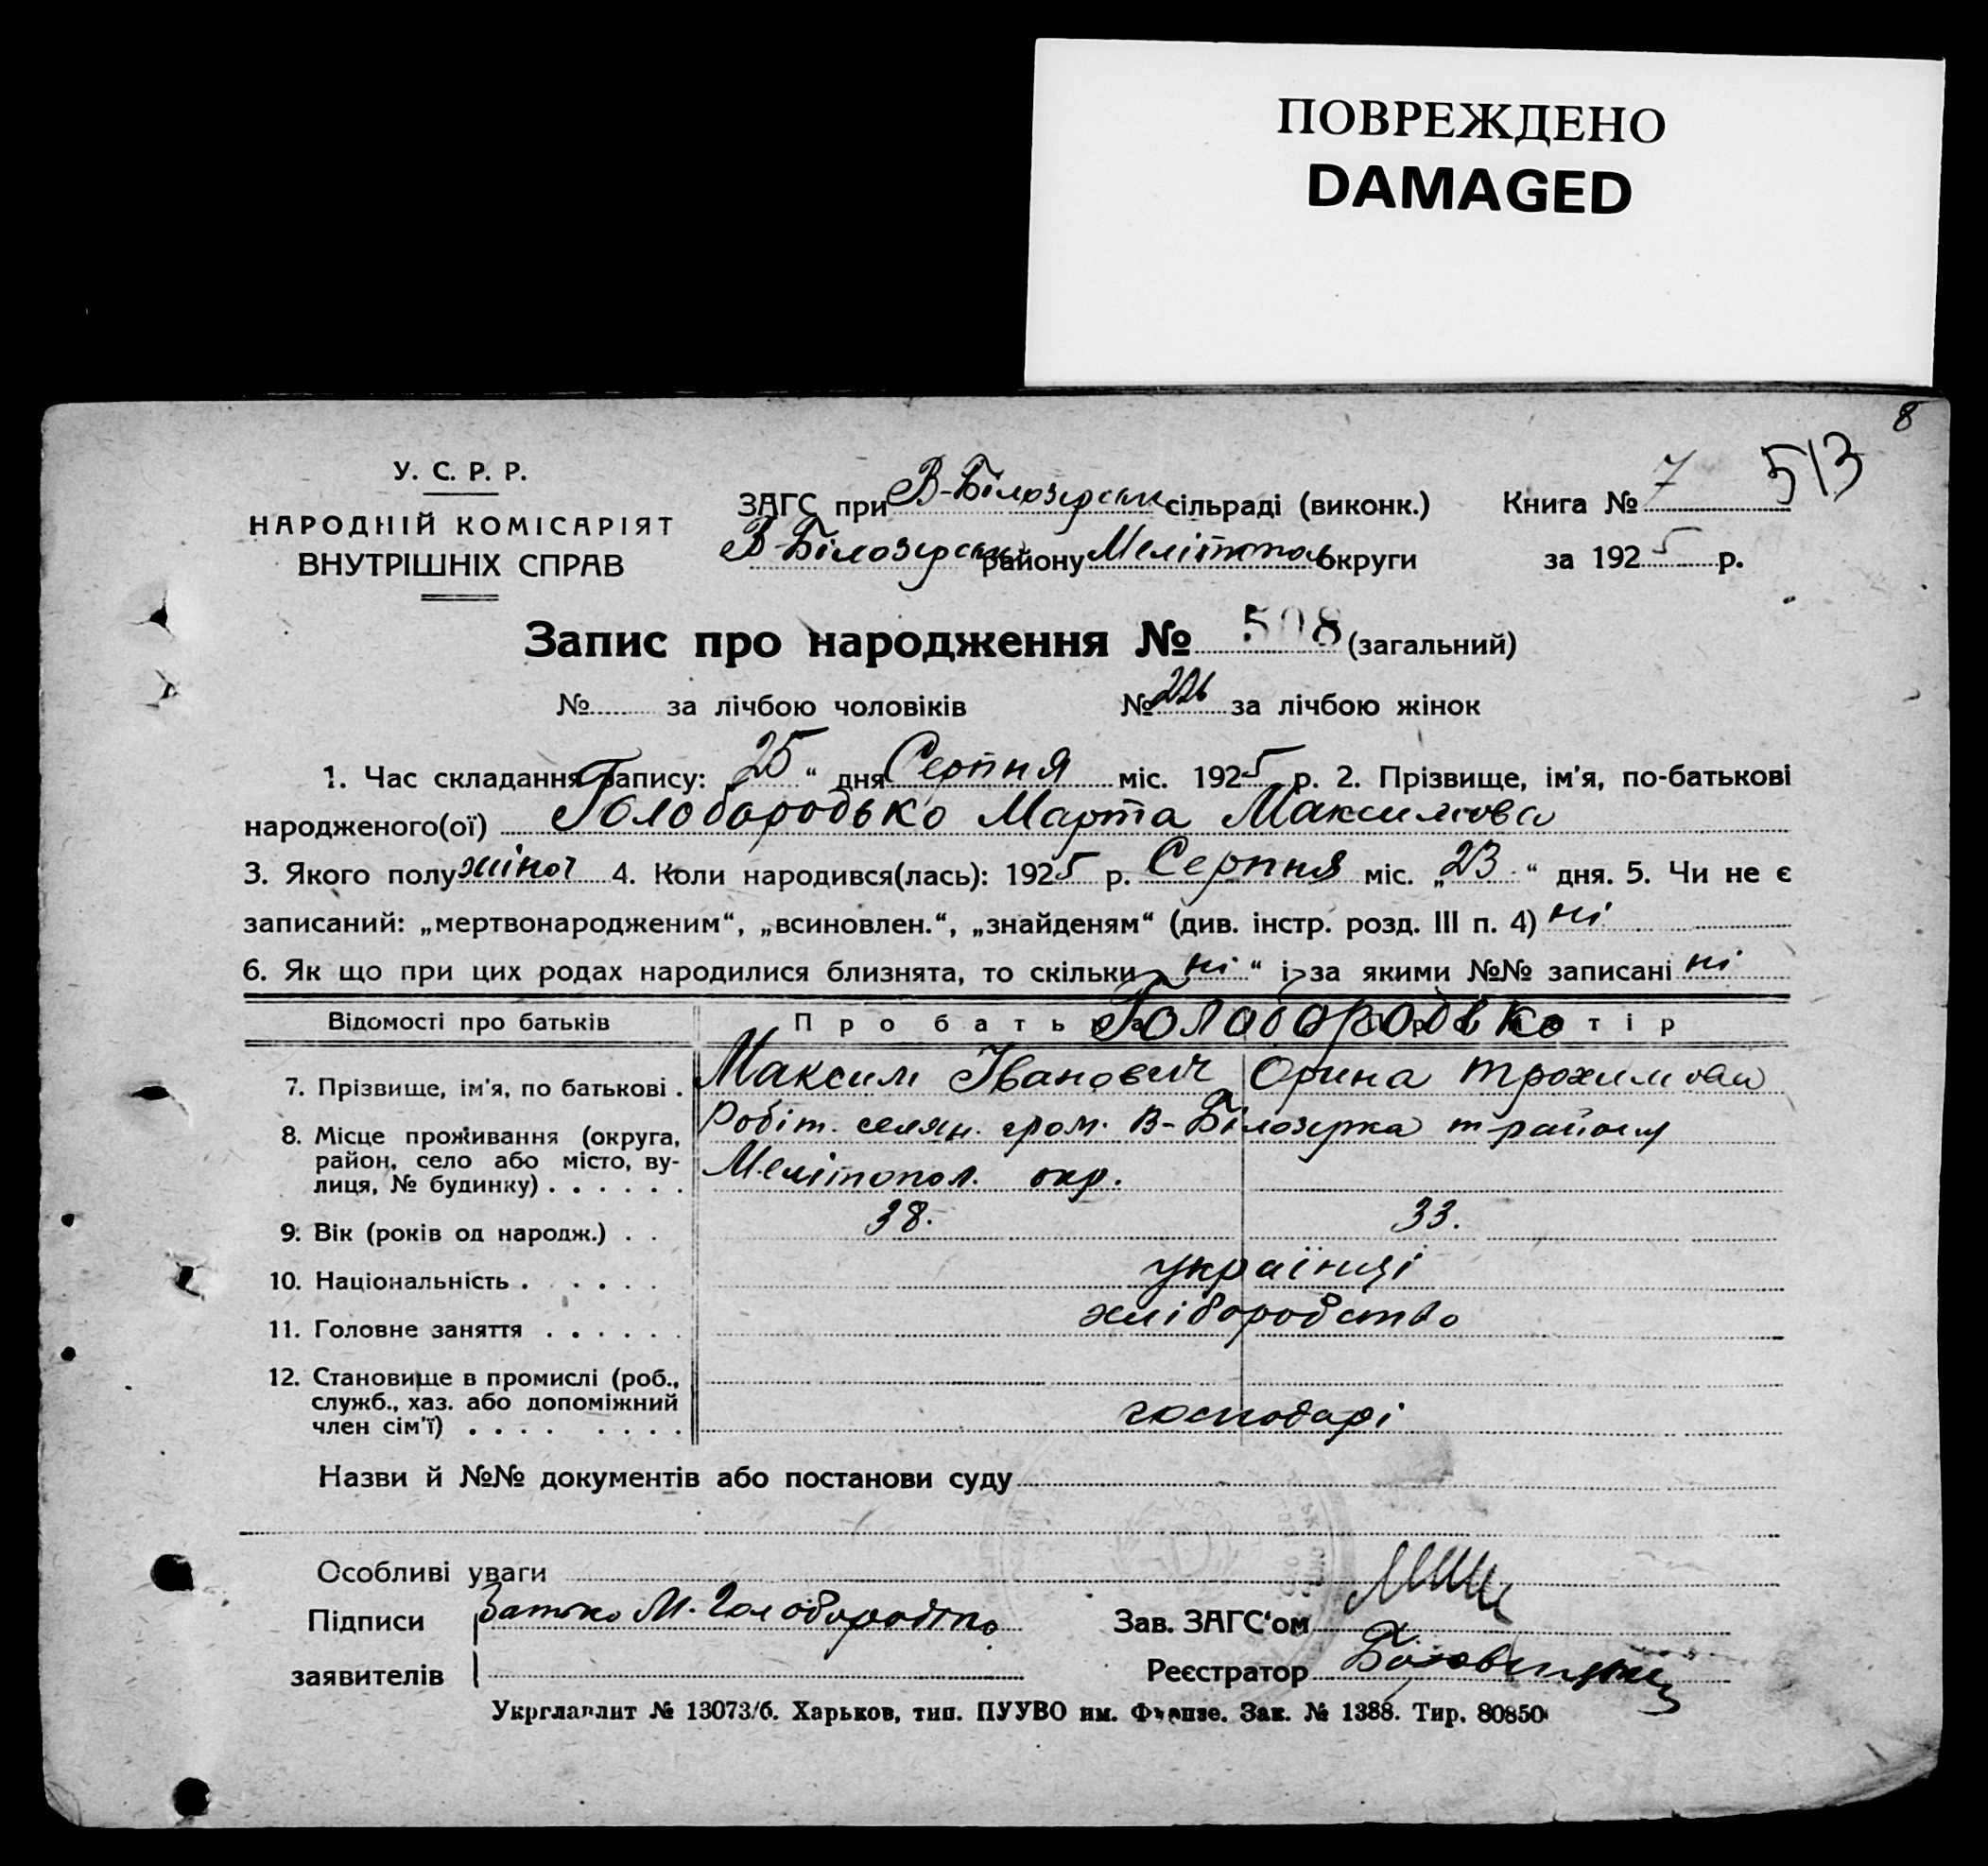 ПОВРЕЖДЕНО
DAMAGED
8
У. С. Р. Р.
НАРОДНІЙ КОМІСАРІЯТ
ВНУТРІШНІХ СПРАВ
ЗАГС при В-Білозерськ сільраді (виконк.) Книга № 7 513
В-Білозерськ району Мелітопол округи за 1925 р.
Запис про народження № 508 (загальний)
№ за лічбою чоловіків № 226 за лічбою жінок
1. Час складання запису: 25 “ дня Серпня міс. 1925 р. 2. Прізвище, ім'я, по-батькові
народженого(ої) Голобородько Марта Максимова
3. Якого полу жіноч 4. Коли народився(лась): 1925 р. Серпня міс. „23“ дня. 5. Чи не є
записаний: „мертвонародженим“, „всиновлен.“, „знайденям“ (див. інстр. розд. III п. 4) ні
6. Як що при цих родах народилися близнята, то скільки „ні“ і за якими №№ записані ні
Відомості про батьків Про батька Голобородько Про матір
7. Прізвище, ім'я, по батькові . Максим Іванович Орина Трохимова
8. Місце проживання (округа, район, село або місто, вулиця, № будинку) . . . . . . Робіт. селян. гром. В-Білозерка т району
Мелітопол. окр.
9. Вік (років од народж.) . . 38. 33.
10. Національність . . . . . . українці
11. Головне заняття . . . . . . хліборобство
12. Становище в промислі (роб.,
служб., хаз. або допоміжний
член сім'ї) . . . . . . . . господарі
Назви й №№ документів або постанови суду
Особливі уваги
Підписи Батько М. Голобородько Зав. ЗАГС‘ом
заявителів Реєстратор
Укрглавлит № 13073/б. Харьков, тип. ПУУВО им. Фрунзе. Зак. № 1388. Тир. 80850